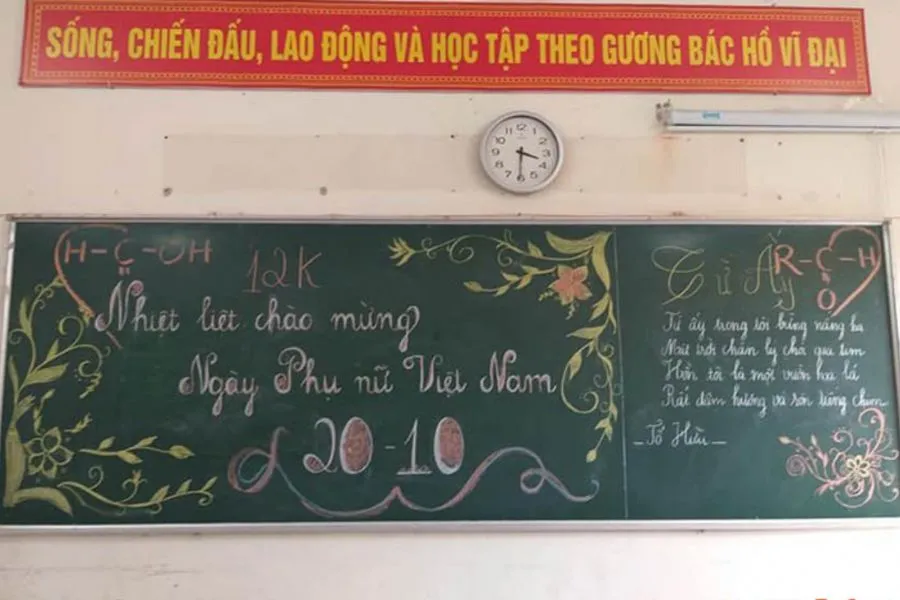 SỐNG, CHIẾN ĐẤU, LAO ĐỘNG VÀ HỌC TẬP THEO GƯƠNG BÁC HỒ VĨ ĐẠI
H-C-OH
12K
Nhiệt liệt chào mừng
Ngày Phụ nữ Việt Nam
20-10
Từ Ấy
R-C-H
O
Từ ấy trong tôi bừng nắng hạ
Mặt trời chân lý chói qua tim
Hồn tôi là một vườn hoa lá
Rất đậm hương và rộn tiếng chim
_Tố Hữu_